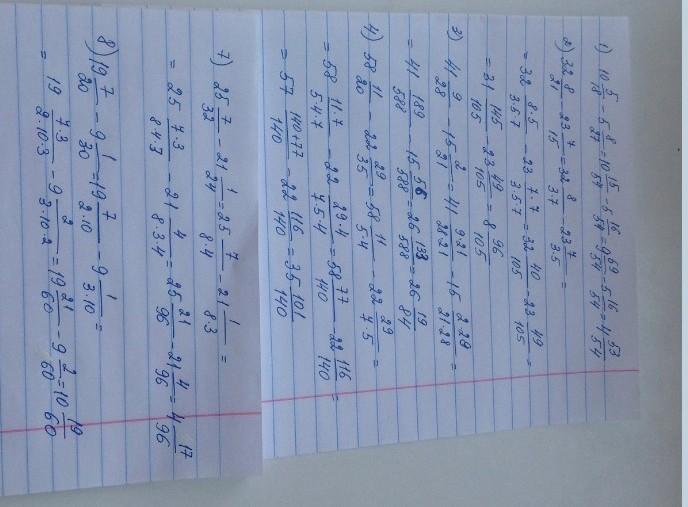 1) 10 5/18 - 5 8/27 = 10 15/54 - 5 16/54 = 9 69/54 - 5 16/54 = 4 53/54
2) 32 8/21 - 23 7/15 = 32 8/3·7 - 23 7/3·5 =
= 32 8·5/3·5·7 - 23 7·7/3·5·7 = 32 40/105 - 23 49/105 =
= 31 145/105 - 23 49/105 = 8 96/105
3) 41 9/28 - 15 2/21 = 41 9·21/28·21 - 15 2·28/21·28 =
= 41 189/588 - 15 56/588 = 26 133/588 = 26 19/84
4) 58 11/20 - 22 29/35 = 58 11/5·4 - 22 29/7·5 =
= 58 11·7/5·4·7 - 22 29·4/7·5·4 = 58 77/140 - 22 116/140 =
= 57 140+77/140 - 22 116/140 = 35 101/140
7) 25 7/32 - 21 1/24 = 25 7/8·4 - 21 1/8·3 =
= 25 7·3/8·4·3 - 21 4/8·3·4 = 25 21/96 - 21 4/96 = 4 17/96
8) 19 7/20 - 9 1/30 = 19 7/2·10 - 9 1/3·10 =
= 19 7·3/2·10·3 - 9 2/3·10·2 = 19 21/60 - 9 2/60 = 10 19/60